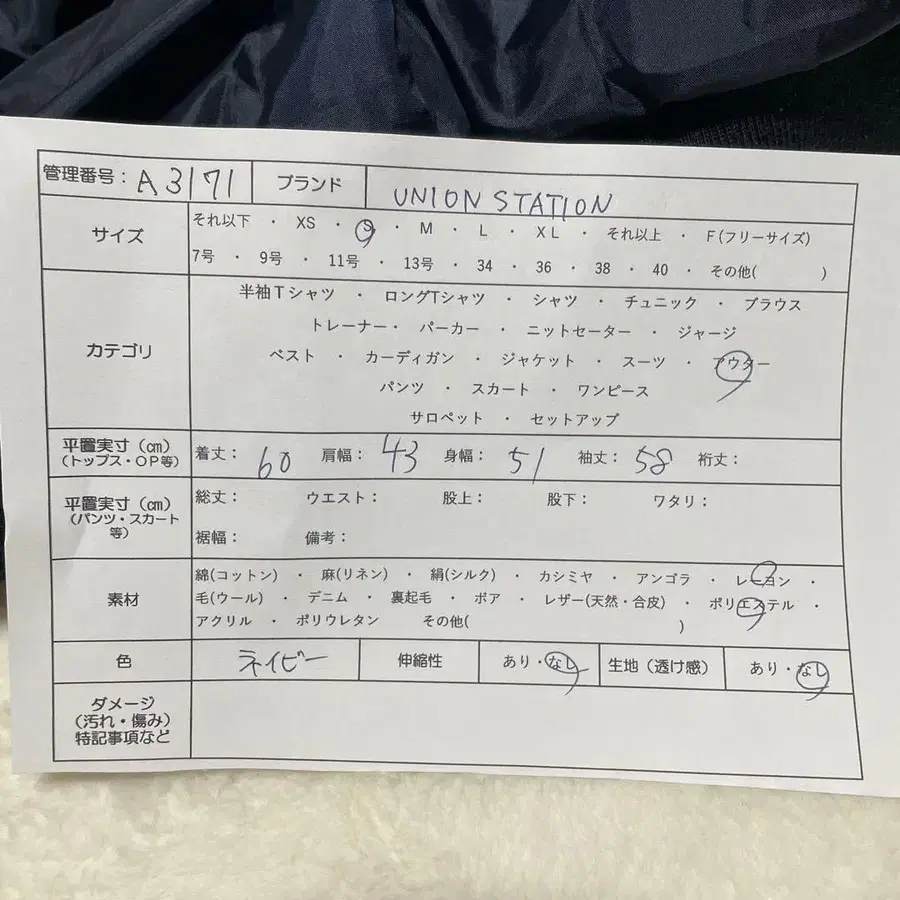 管理番号： A3171 ブランド UNION STATION
サイズ
それ以下 ・ XS ・ S ・ M ・ L ・ XL ・ それ以上 ・ F(フリーサイズ)
7号 ・ 9号 ・ 11号 ・ 13号 ・ 34 ・ 36 ・ 38 ・ 40 ・ その他( )
カテゴリ
半袖Tシャツ ・ ロングTシャツ ・ シャツ ・ チュニック ・ ブラウス
トレーナー・ パーカー ・ ニットセーター ・ ジャージ
ベスト ・ カーディガン ・ ジャケット ・ スーツ ・ アウター
パンツ ・ スカート ・ ワンピース
サロペット ・ セットアップ
平置実寸（㎝）
（トップス・OP等）
着丈： 60 肩幅： 43 身幅： 51 袖丈： 58 裄丈：
平置実寸（㎝）
（パンツ・スカート
等）
総丈： ウエスト： 股上： 股下： ワタリ：
裾幅： 備考：
素材
綿(コットン) ・ 麻(リネン) ・ 絹(シルク) ・ カシミヤ ・ アンゴラ ・ レーヨン ・
毛(ウール) ・ デニム ・ 裏起毛 ・ ボア ・ レザー(天然・合皮) ・ ポリエステル ・
アクリル ・ ポリウレタン その他( )
色 ネイビー 伸縮性 あり・なし 生地（透け感） あり・なし
ダメージ
（汚れ・傷み）
特記事項など